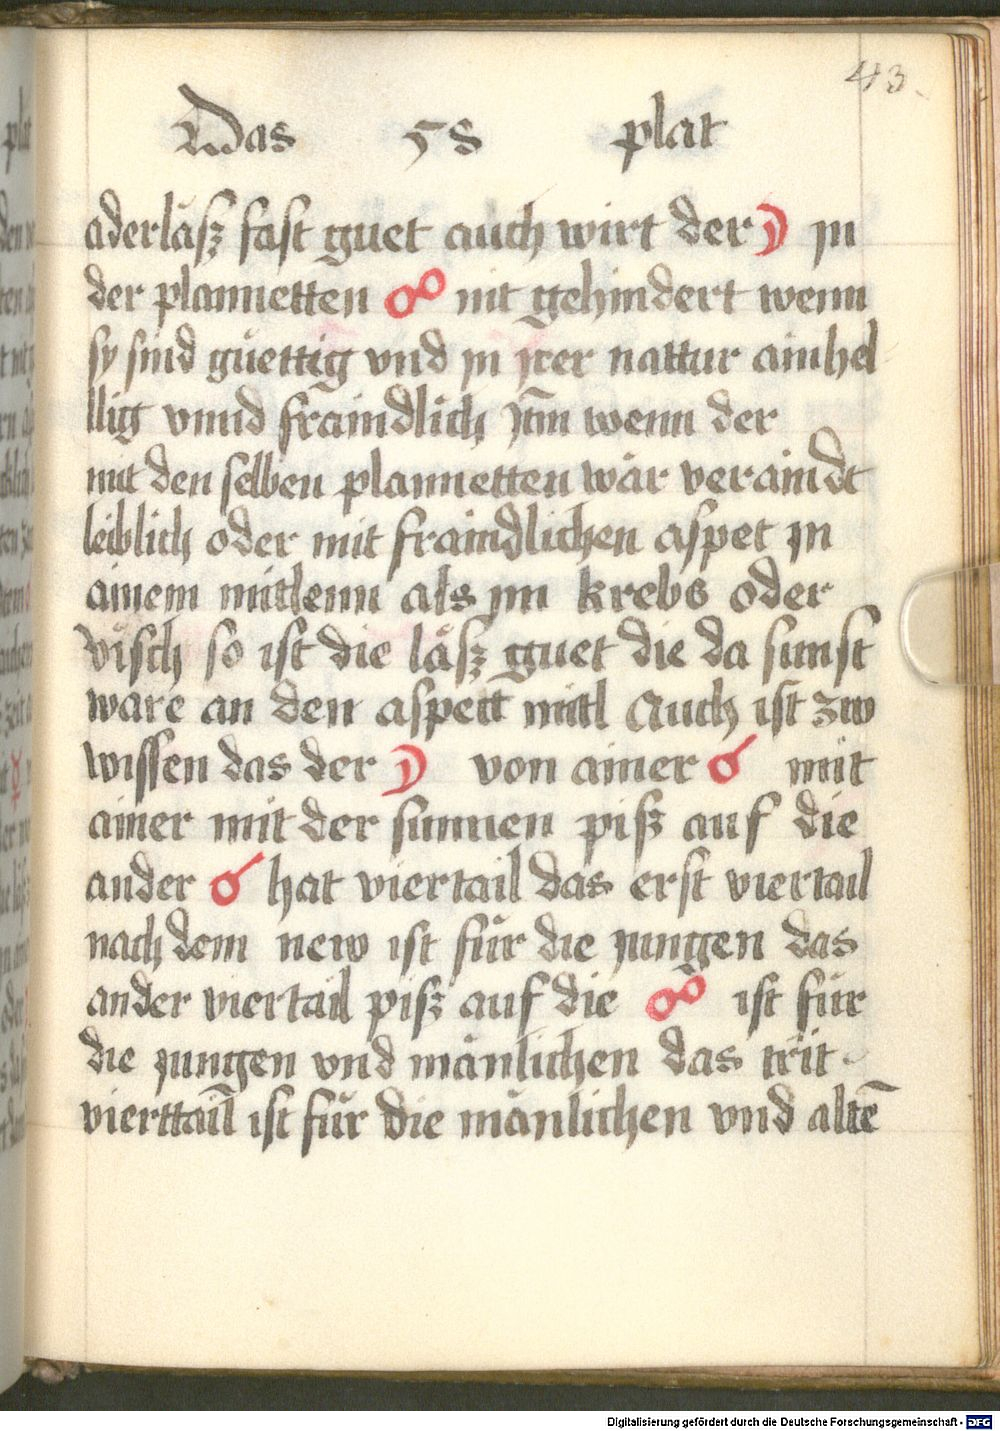 43.
Das 58 plat
aderläsz fast guet auch wirt der ☽ in
der plannetten ☍ nit gehindert wenn
sy sind güettig vnd in irer nattur ainhel
llig vnnd fraindlich wenn der
mit den selben plannetten wär veraindt
leiblich oder mit fraindlichen aspet in
ainem mitlenn als im krebs oder
visch so ist die läsz guet die da sunst
ware an den aspett mitl Auch ist zw
wissen das der ☽ von ainer ☌ mit
ainer mit der sunnen pisz auf die
ander ☌ hat viertail das erst viertail
nach dem new ist für die jungen das
ander viertail pisz auf die ☍ ist für
die jungen vnd mänlichen das trit
vierttail ist für die mänlichen vnd altē
Digitalisierung gefördert durch die Deutsche Forschungsgemeinschaft - DFG